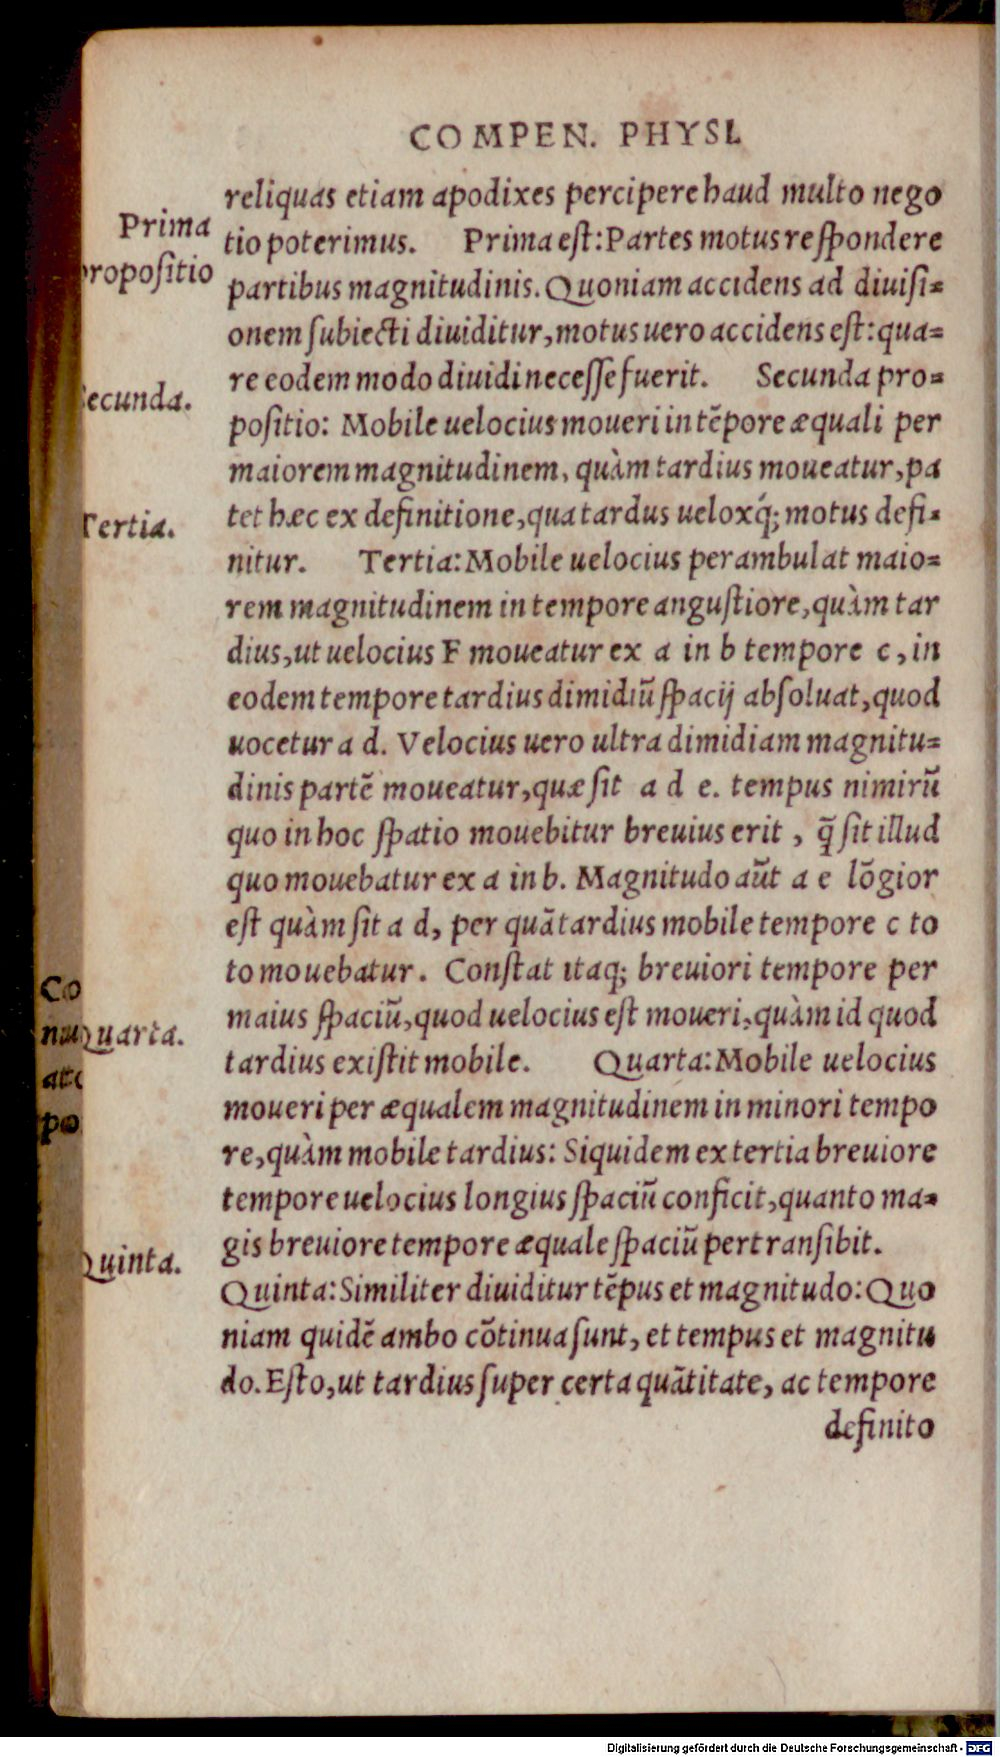 COMPEN. PHYSI.
reliquas etiam apodixes percipere haud multo nego
Prima
tio poterimus. Prima est: Partes motus respondere
propositio
partibus magnitudinis. Quoniam accidens ad diuisi=
onem subiecti diuiditur, motus uero accidens est: qua=
re eodem modo diuidi necesse fuerit. Secunda pro=
Secunda.
positio: Mobile uelocius moueri in tẽpore æquali per
maiorem magnitudinem, quàm tardius moueatur, pa
tet hæc ex definitione, qua tardus ueloxq́; motus defi=
Tertia.
nitur. Tertia: Mobile uelocius perambulat maio=
rem magnitudinem in tempore angustiore, quàm tar
dius, ut uelocius F moueatur ex a in b tempore c, in
eodem tempore tardius dimidiũ spacij absoluat, quod
uocetur a d. Velocius uero ultra dimidiam magnitu=
dinis partẽ moueatur, quæ sit a d e. tempus nimirũ
quo in hoc spatio mouebitur breuius erit, q̃ sit illud
quo mouebatur ex a in b. Magnitudo aũt a e lõgior
est quàm sit a d, per quã tardius mobile tempore c to
to mouebatur. Constat itaq; breuiori tempore per
Co
maius spaciũ, quod uelocius est moueri, quàm id quod
Quarta.
tardius existit mobile. Quarta: Mobile uelocius
moueri per æqualem magnitudinem in minori tempo
po
re, quàm mobile tardius: Siquidem ex tertia breuiore
tempore uelocius longius spaciũ conficit, quanto ma=
gis breuiore tempore æquale spaciũ pertransibit.
Quinta.
Quinta: Similiter diuiditur tẽpus et magnitudo: Quo
niam quidẽ ambo cõtinua sunt, et tempus et magnitu
do. Esto, ut tardius super certa quãtitate, ac tempore
definito
Digitalisierung gefördert durch die Deutsche Forschungsgemeinschaft - DFG